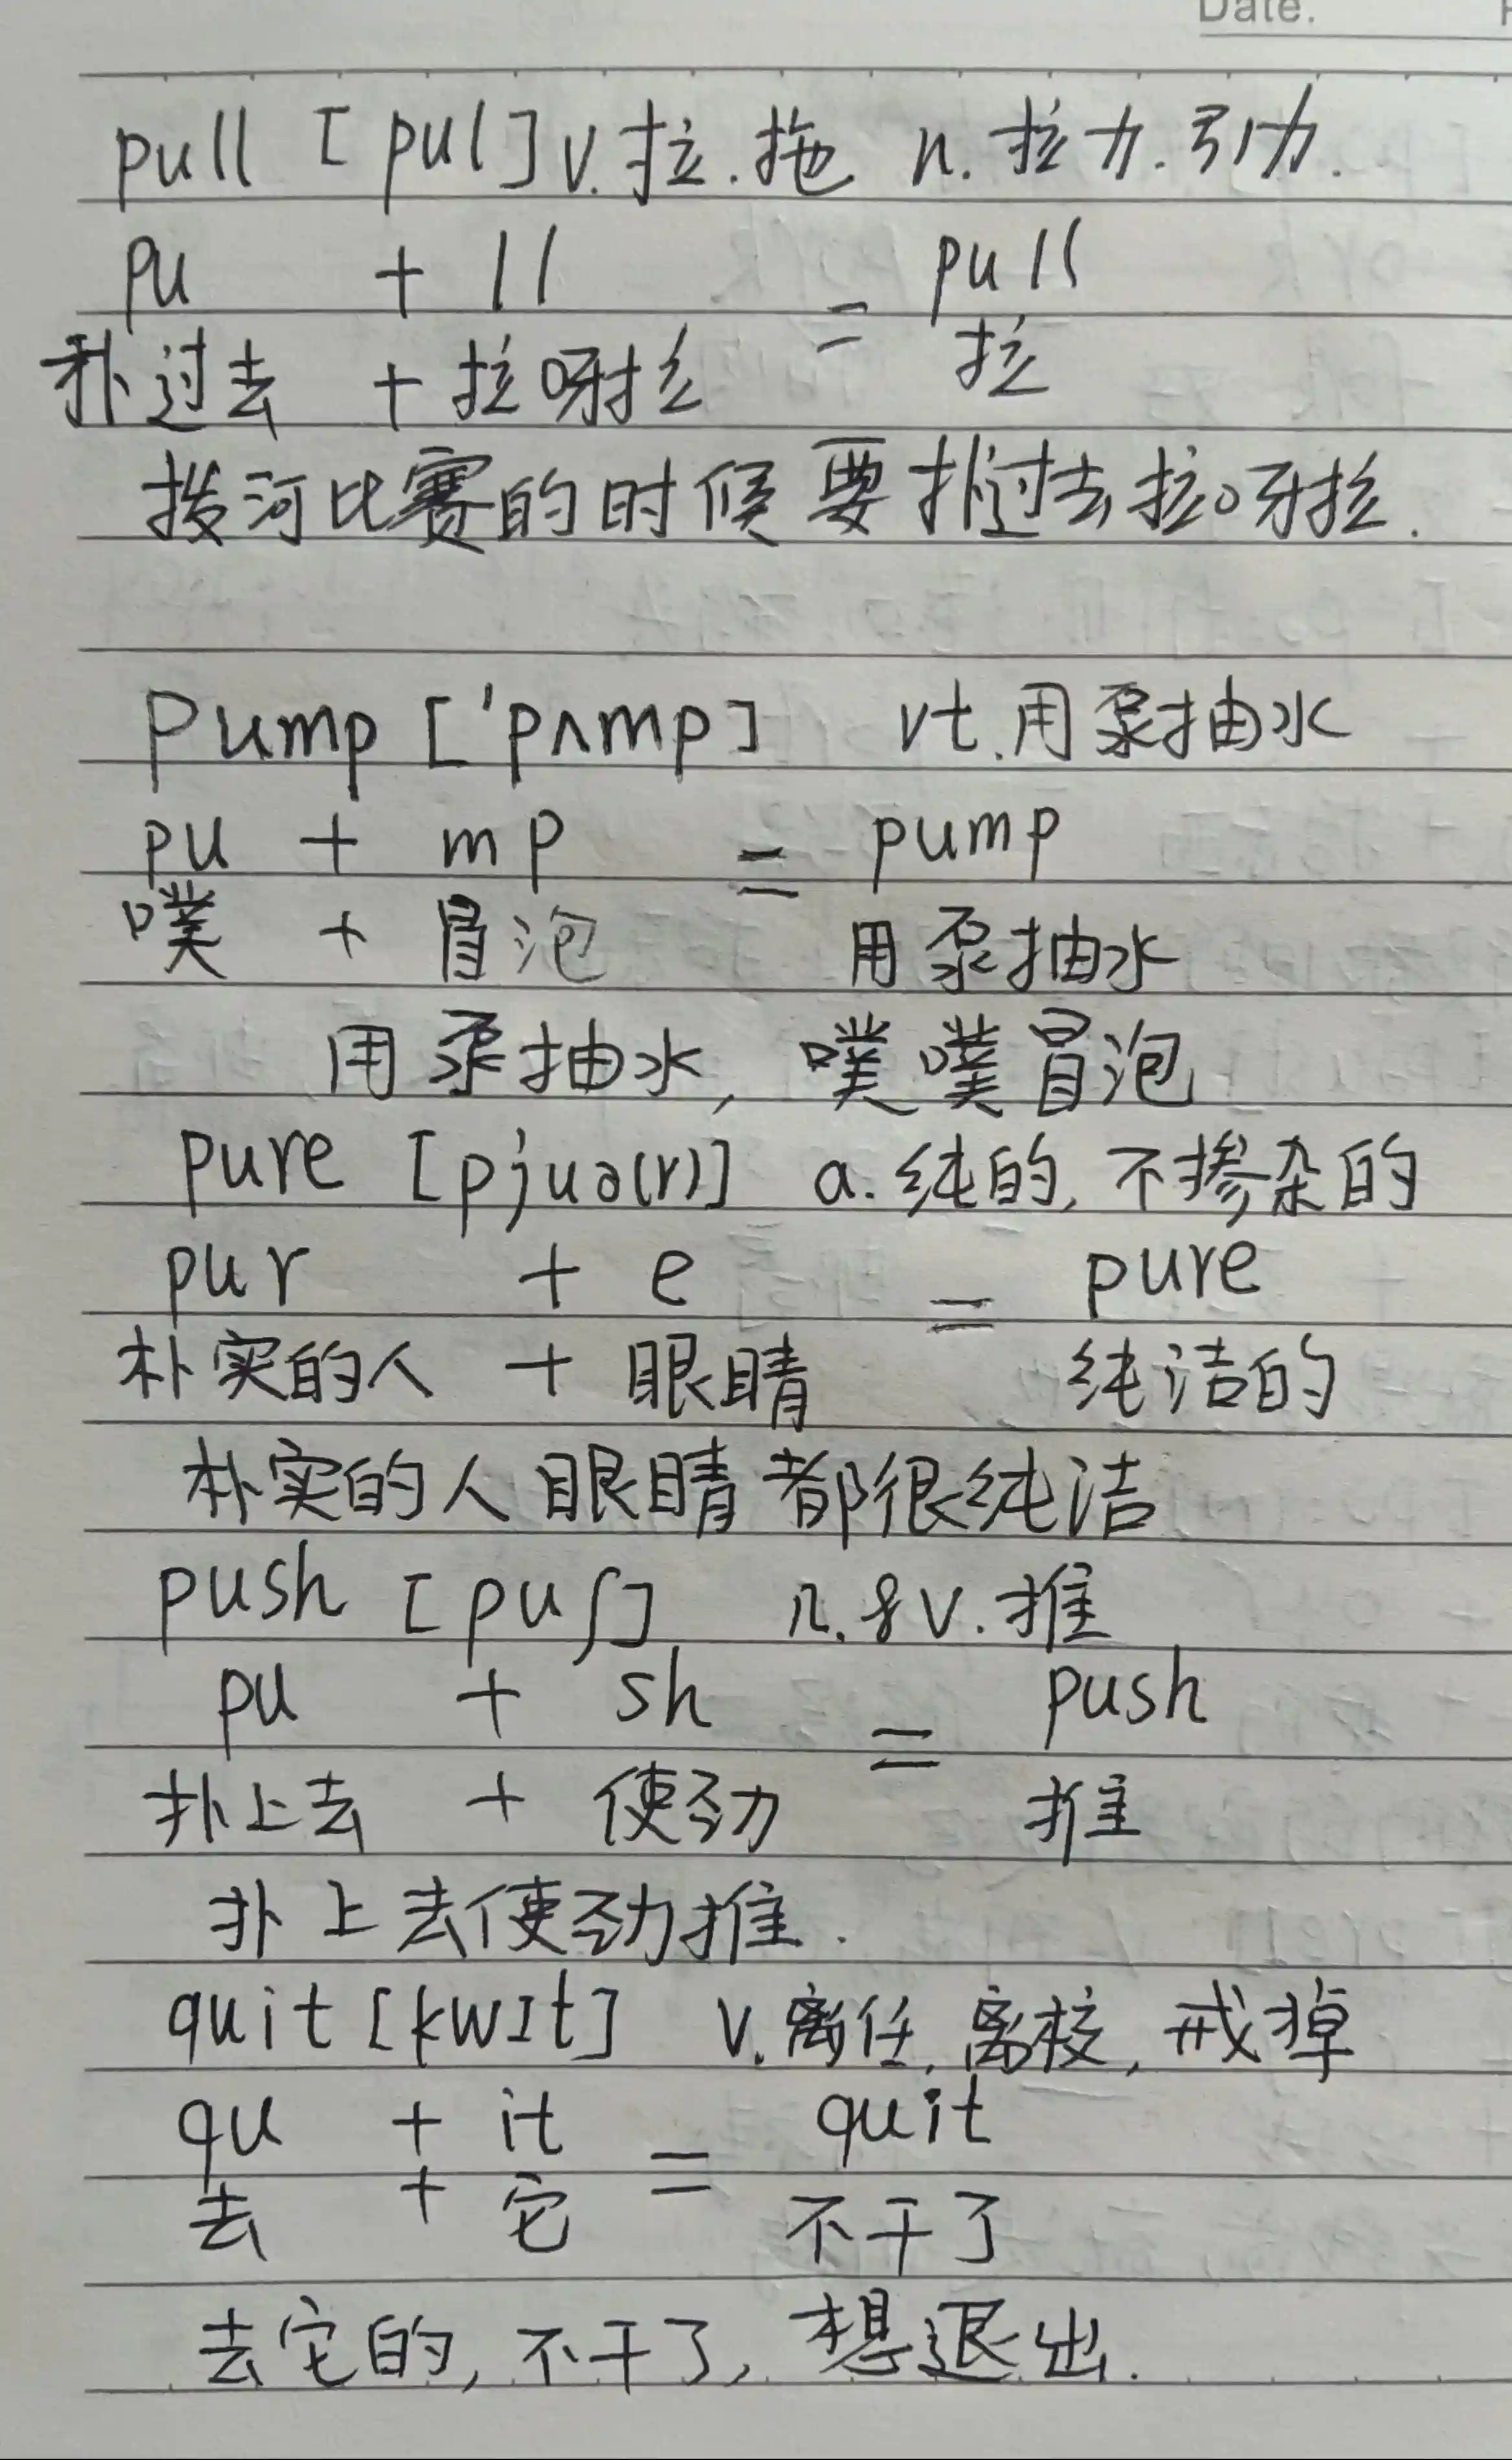 Date.
pull [pul] v.拉.拖 n.拉力.引力.
pu + ll = pull
扑过去 + 拉呀拉 拉
拨河比赛的时候要扑过去拉呀拉.
pump ['pʌmp] vt.用泵抽水
pu + mp = pump
噗 + 冒泡 用泵抽水
用泵抽水,噗噗冒泡
pure [pjuə(r)] a.纯的,不掺杂的
pur + e = pure
朴实的人 + 眼睛 纯洁的
朴实的人眼睛都很纯洁
push [puʃ] n.&v.推
pu + sh = push
扑上去 + 使劲 推
扑上去使劲推.
quit [kwɪt] v.离任,离校,戒掉
qu + it = quit
去 + 它 不干了
去它的,不干了,想退出.